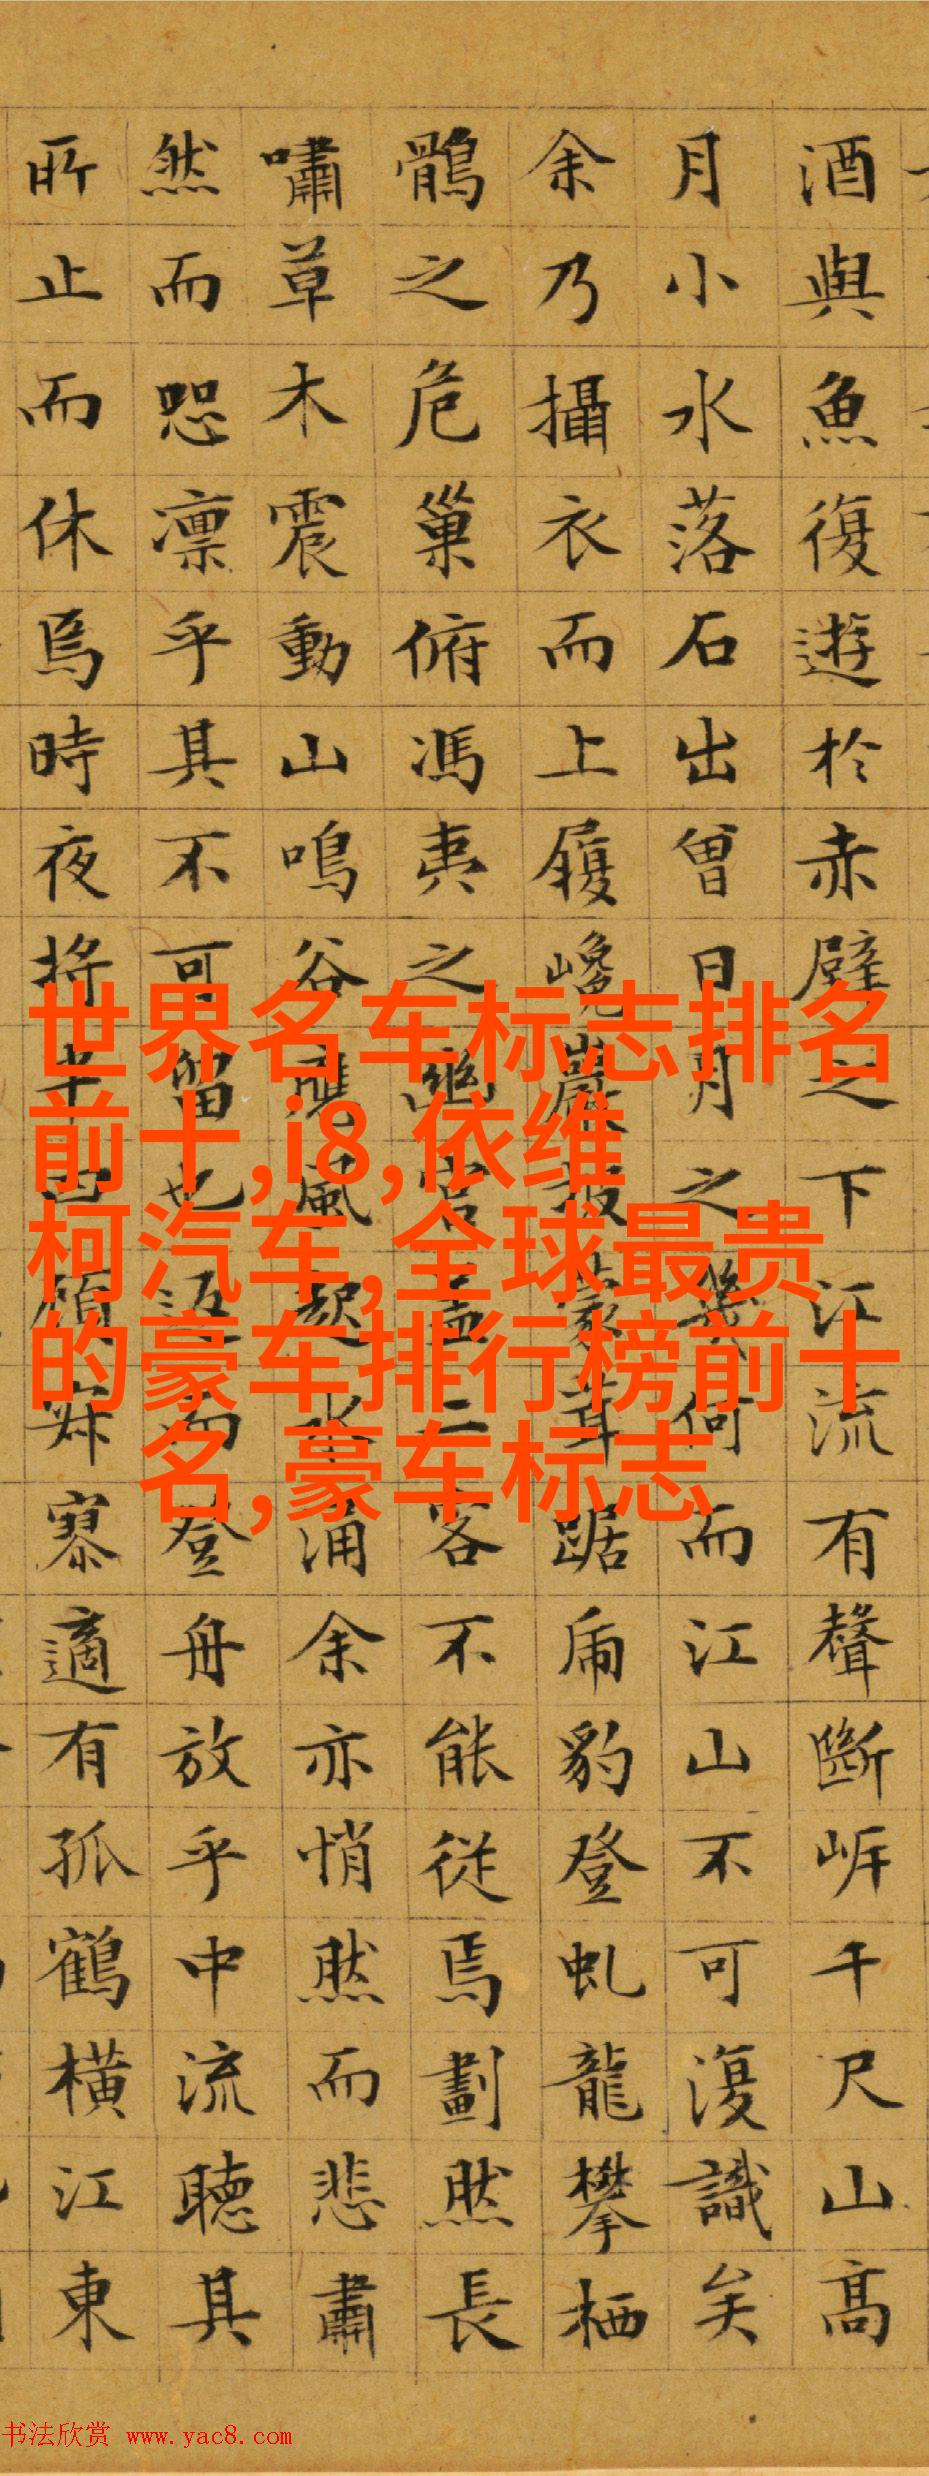 酒與魚復遊於赤壁之下江流有聲斷岸千尺山高
月小水落石出曾日月之幾何而江山不可復識矣
余乃攝衣而上履巉巖披蒙茸踞虎豹登虬龍攀栖
鶻之危巢俯馮夷之幽宮蓋二客不能從焉劃然長
嘯草木震動山鳴谷應風起水涌余亦悄然而悲肅
然而恐凜乎其不可留也返而登舟放乎中流聽其
所止而休焉時夜將半四顧寂寥適有孤鶴橫江東
世界名车标志排名
前十,i8,依维
柯汽车,全球最贵
的豪车排行榜前十
名,豪车标志
书法欣赏 www.yac8.com